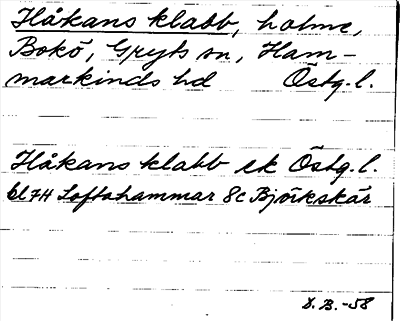 Håkans klabb, holme,
Bokö, Gryts sn, Ham-
markinds hd Östg. l.
Håkans klabb ek Östg. l.
bl 74 Loftahammar 8c Björkskär
D. B. -58